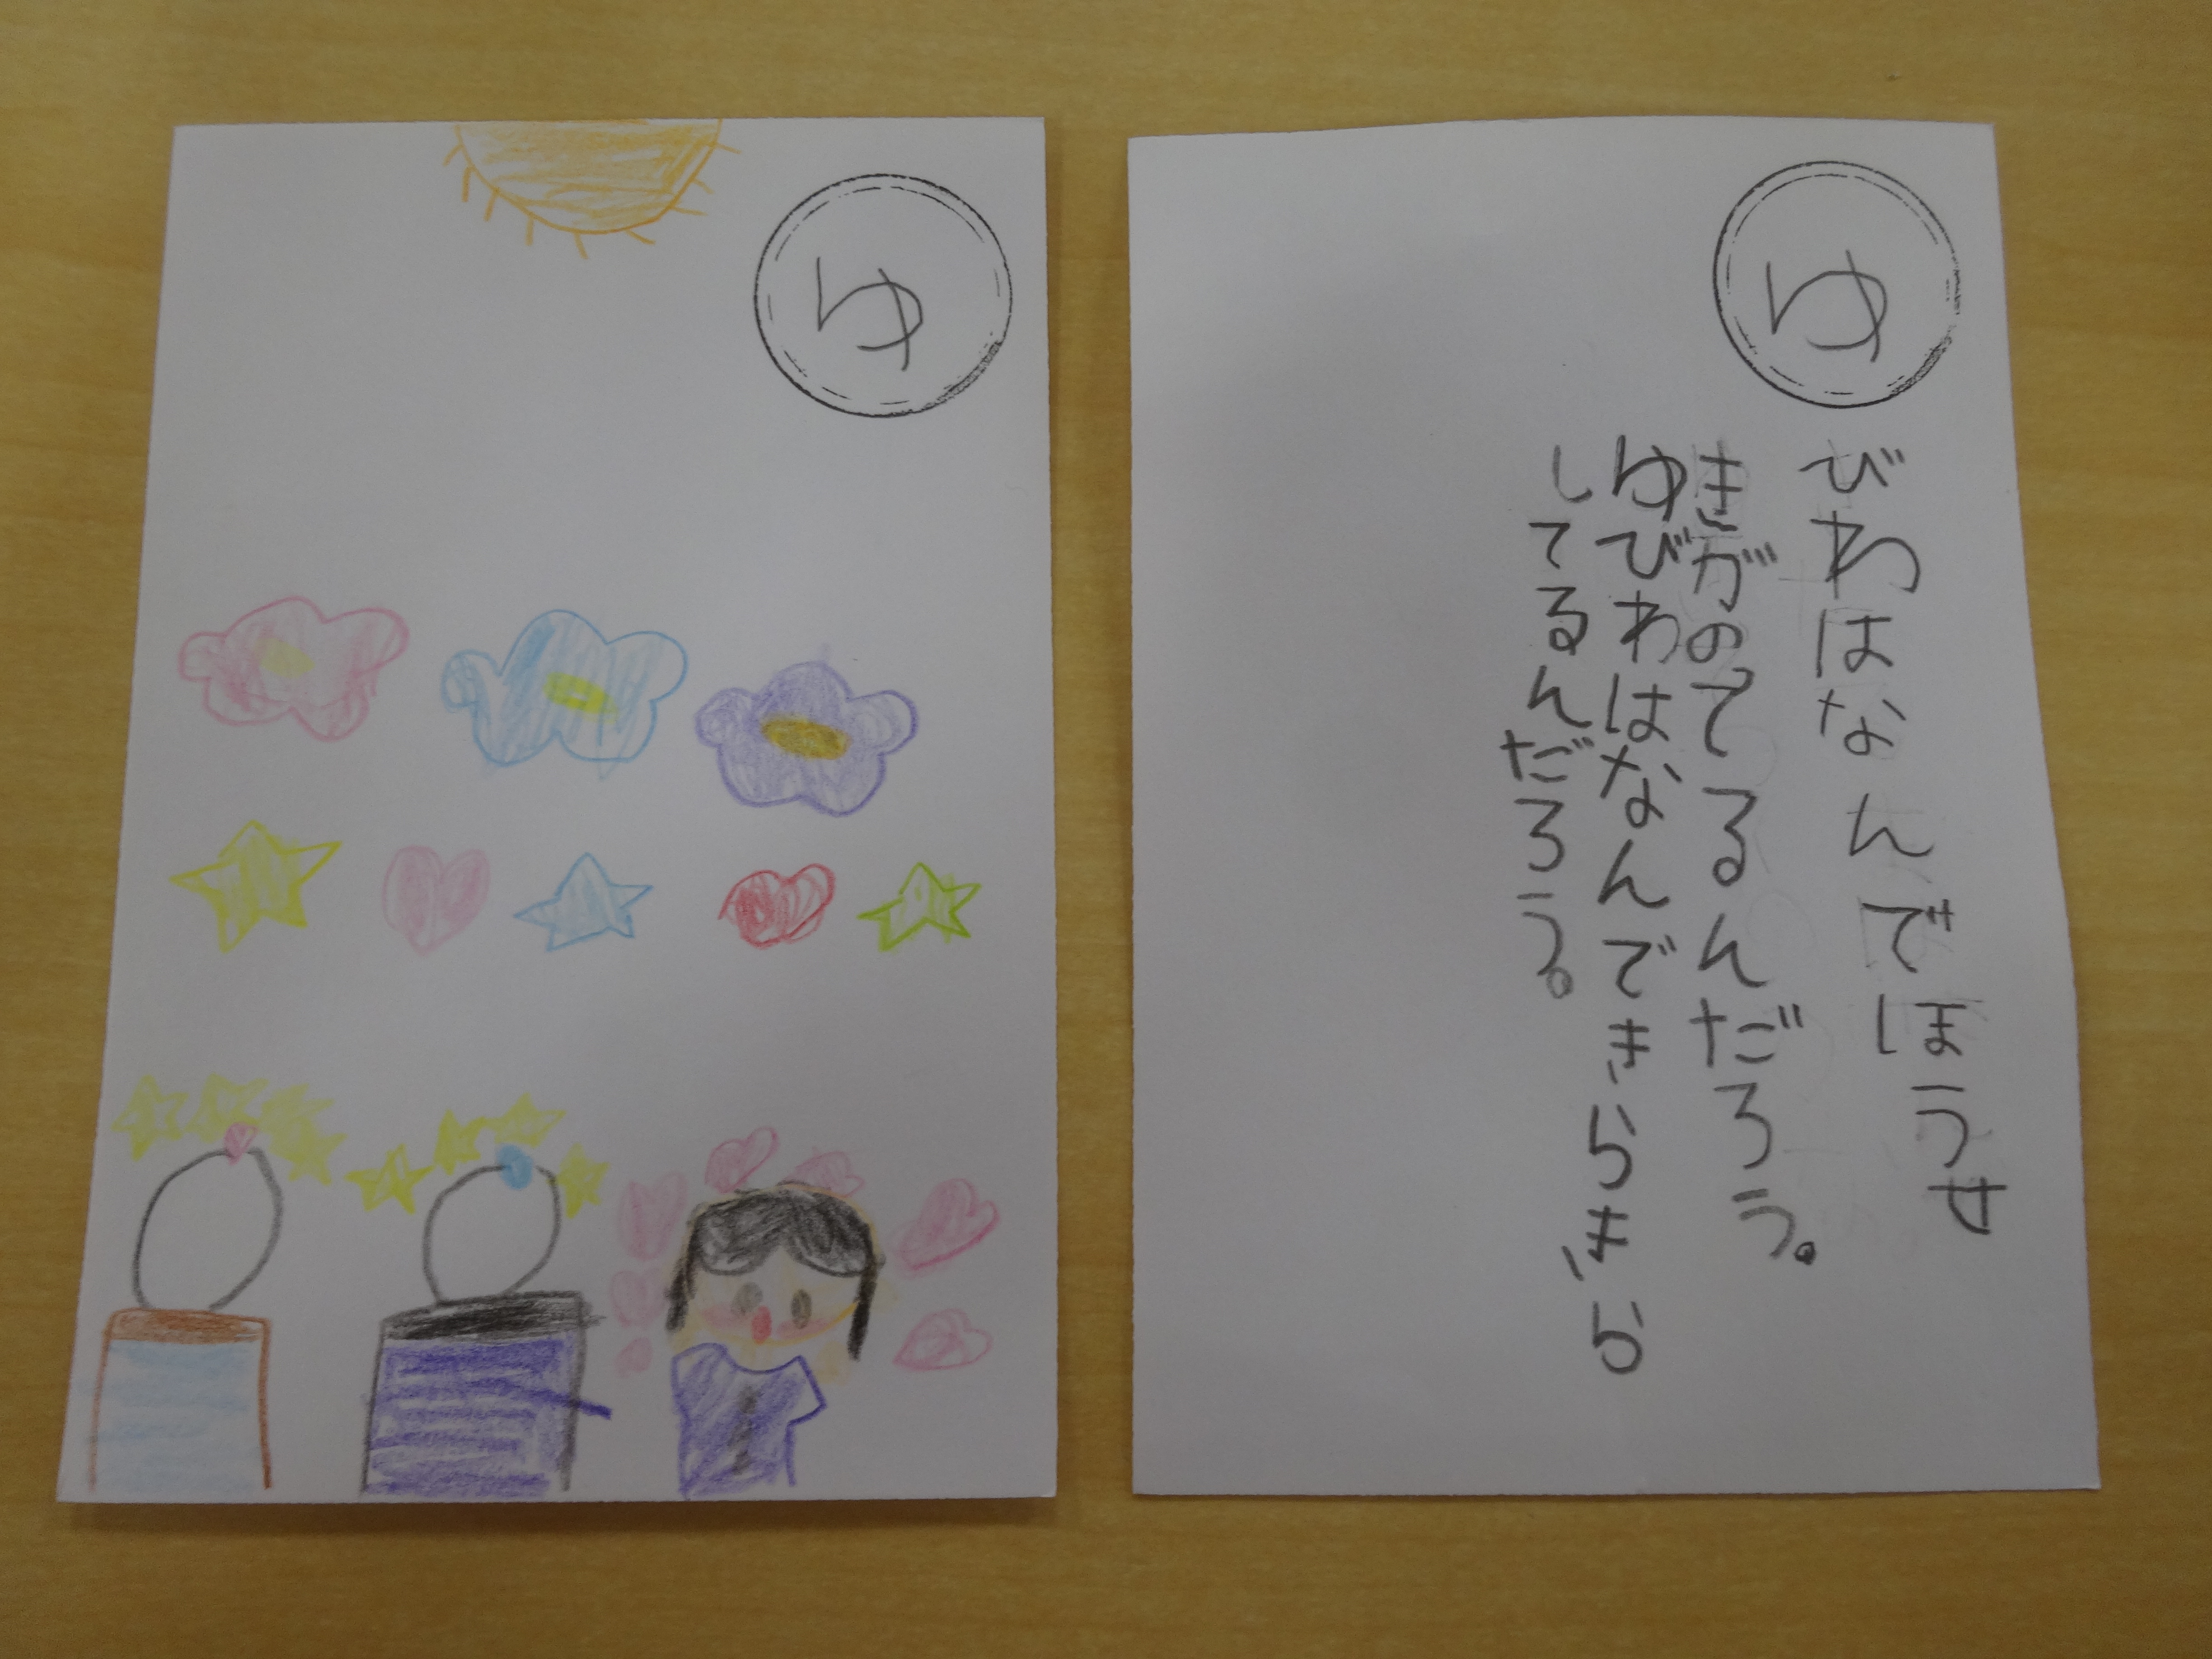 ゆ
ゆ
びわはなんでほうせ
きがのてるんだろう。
ゆびわはなんできらきら
してるんだろう。